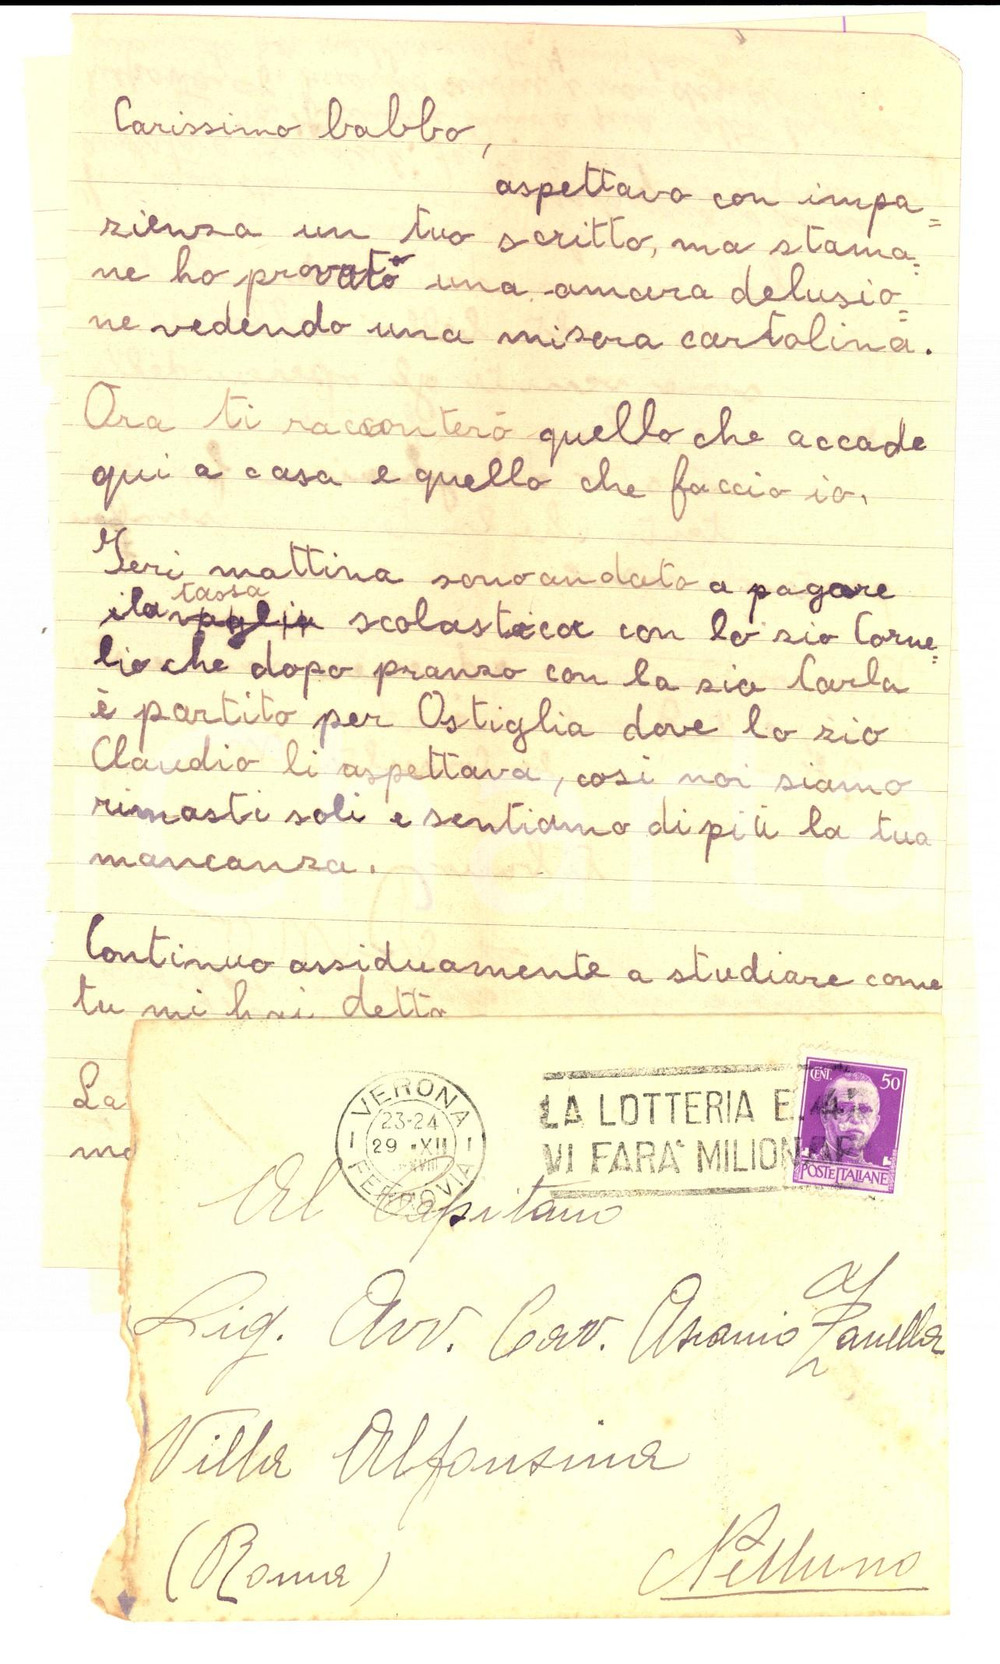 Carissimo babbo,
aspettavo con impa=
zienza un tuo scritto, ma stama=
ne ho provato una amara delusio=
ne vedendo una misera cartolina.
Ora ti racconterò quello che accade
qui a casa e quello che faccio io.
Ieri mattina sono andato a pagare
tassa
la vaglia scolastica con lo zio Corne=
lio che dopo pranzo con la zia Carla
è partito per Ostiglia dove lo zio
Claudio li aspettava, così noi siamo
rimasti soli e sentiamo di più la tua
mancanza.
Continuo assiduamente a studiare come
tu mi hai detto
La
ma
VERONA
23-24
29 · XII
XVIII
FERROVIA
LA LOTTERIA E. 42
VI FARA' MILIONARI
CENT. 50
POSTE ITALIANE
Al Capitano
Sig. Avv. Cav. Ascanio Zanella
Villa Alfonsina
(Roma) Nettuno